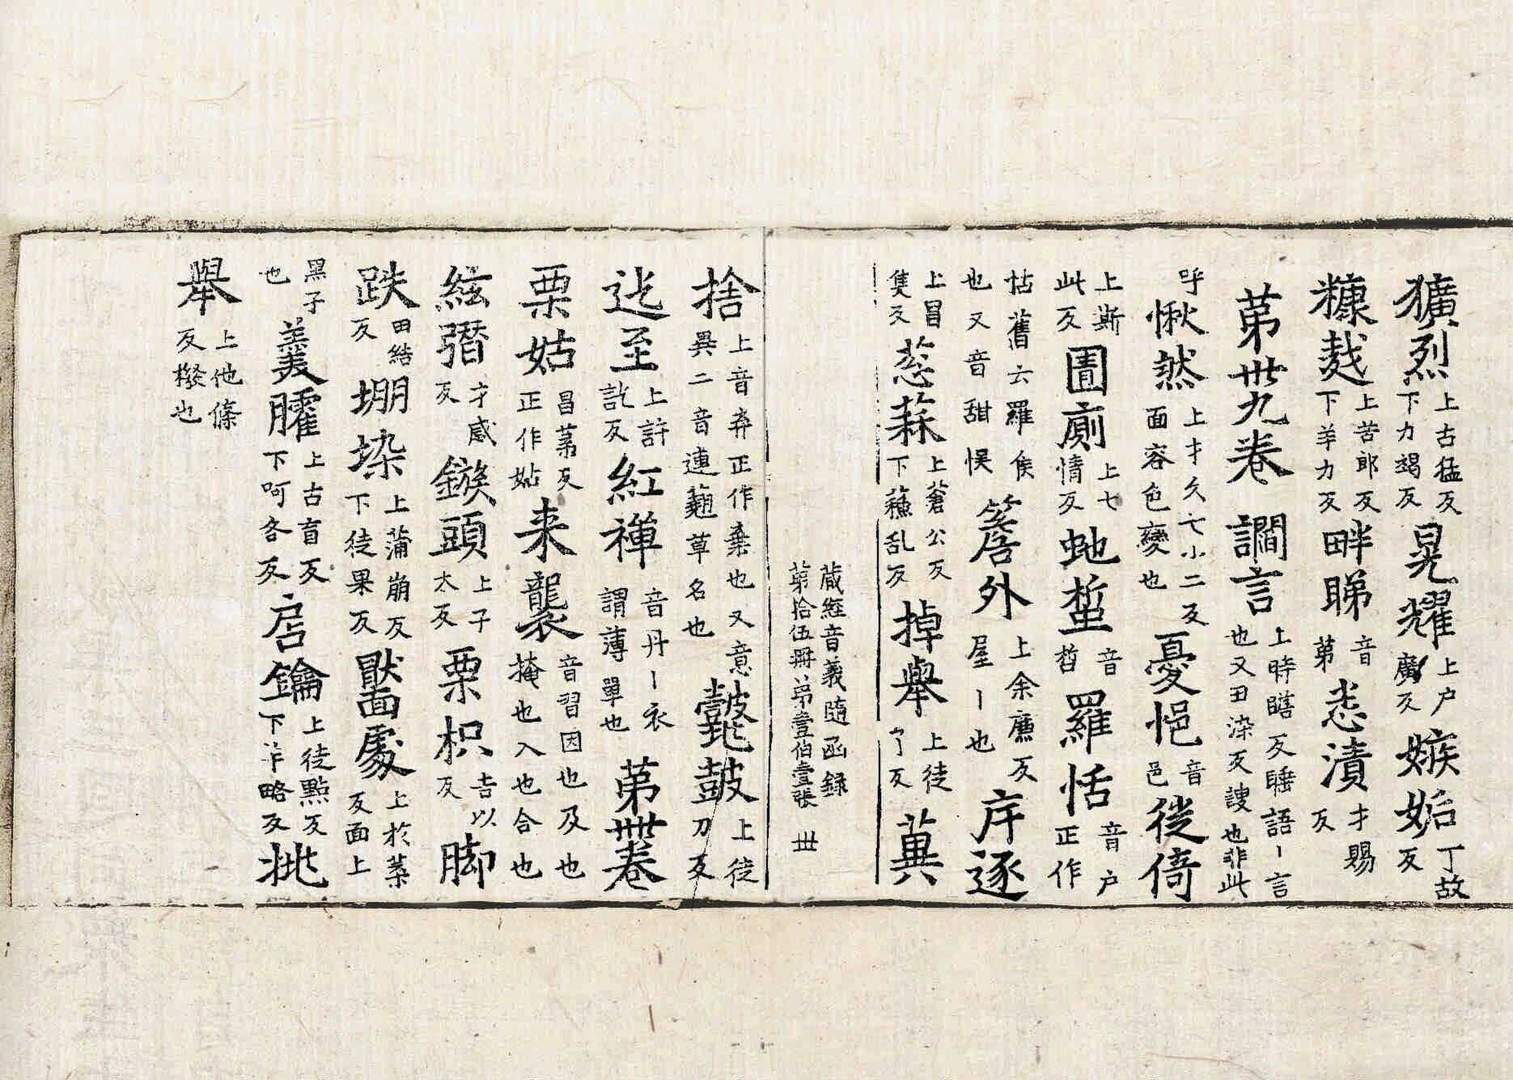 獷烈上古猛反下力竭反晃耀上户廣反嫉妬丁故反
糠麩上苦郎反下羊力反畔睇音第恚漬才賜反
第卅九卷 讇言上時瞎反睡語丨言也又丑染反諛也非此
呼愀然上才久七小二反面容色變也憂悒音邑徙倚
上斯此反圊廁上七情反虵蜇音哲羅恬音户正作
怙舊云羅侯也又音甜悞簷外上余廉反屋丨也序逐
上昌隻反䓗蔴上蒼公反下蘓乱反掉舉上徒了反 萁
藏經音義隨函録
第拾伍冊 第壹伯壹張 丗
捨上音弃正作棄也又意異二音連䎀草名也鼗鼓上徒刀反
迄至上許訖反紅襌音丹丨衣謂薄單也 第卌卷
栗姑昌葉反正作姑来襲音習因也及也掩也入也合也
絃㬱才感反鏃頭上子太反栗枳吉以反脚
跌田結反堋垜上蒲崩反下徒果反黶處上於葉反面上
黑子也羹臛上古盲反下呵各反扂鑰上徒點反下羊略反挑
舉上他條反撥也